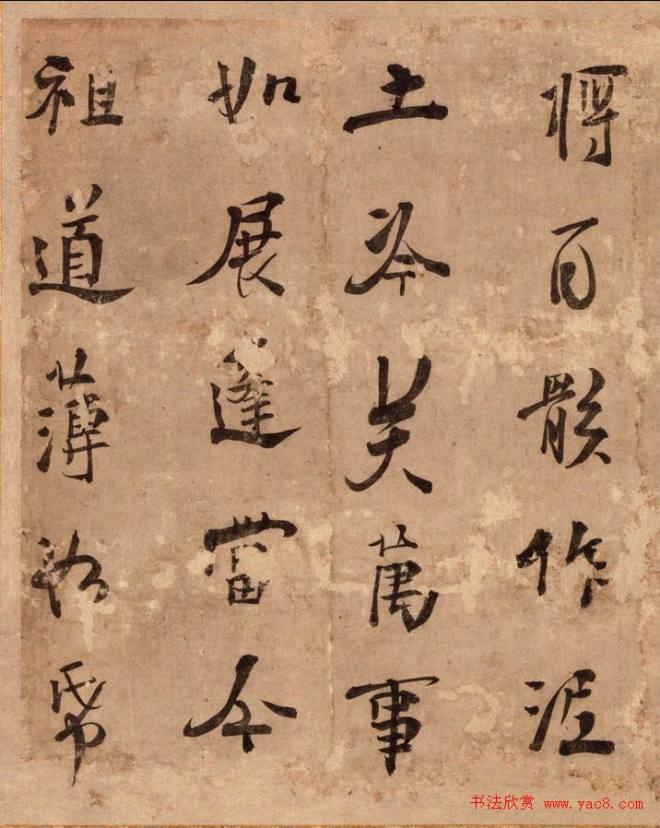 將百骸作泥
土冷笑萬事
如展蓬當今
祖道薄於帋
书法欣赏 www.yac8.com